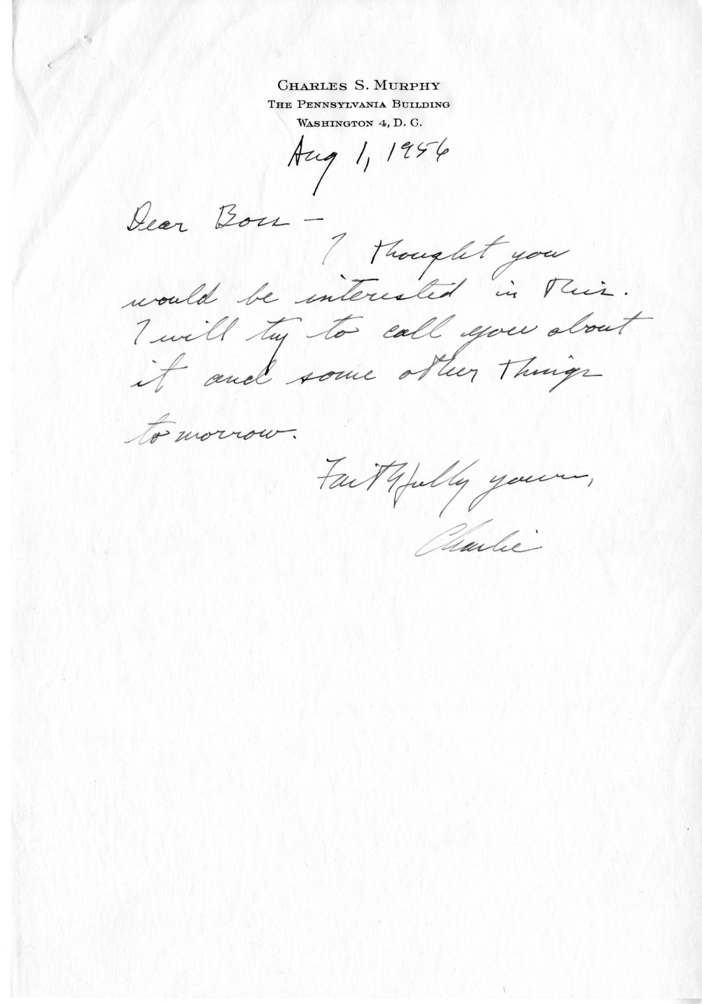 CHARLES S. MURPHY
THE PENNSYLVANIA BUILDING
WASHINGTON 4, D. C.
Aug 1, 1956
Dear Boss —
I thought you
would be interested in this.
I will try to call you about
it and some other things
tomorrow.
Faithfully yours,
Charlie